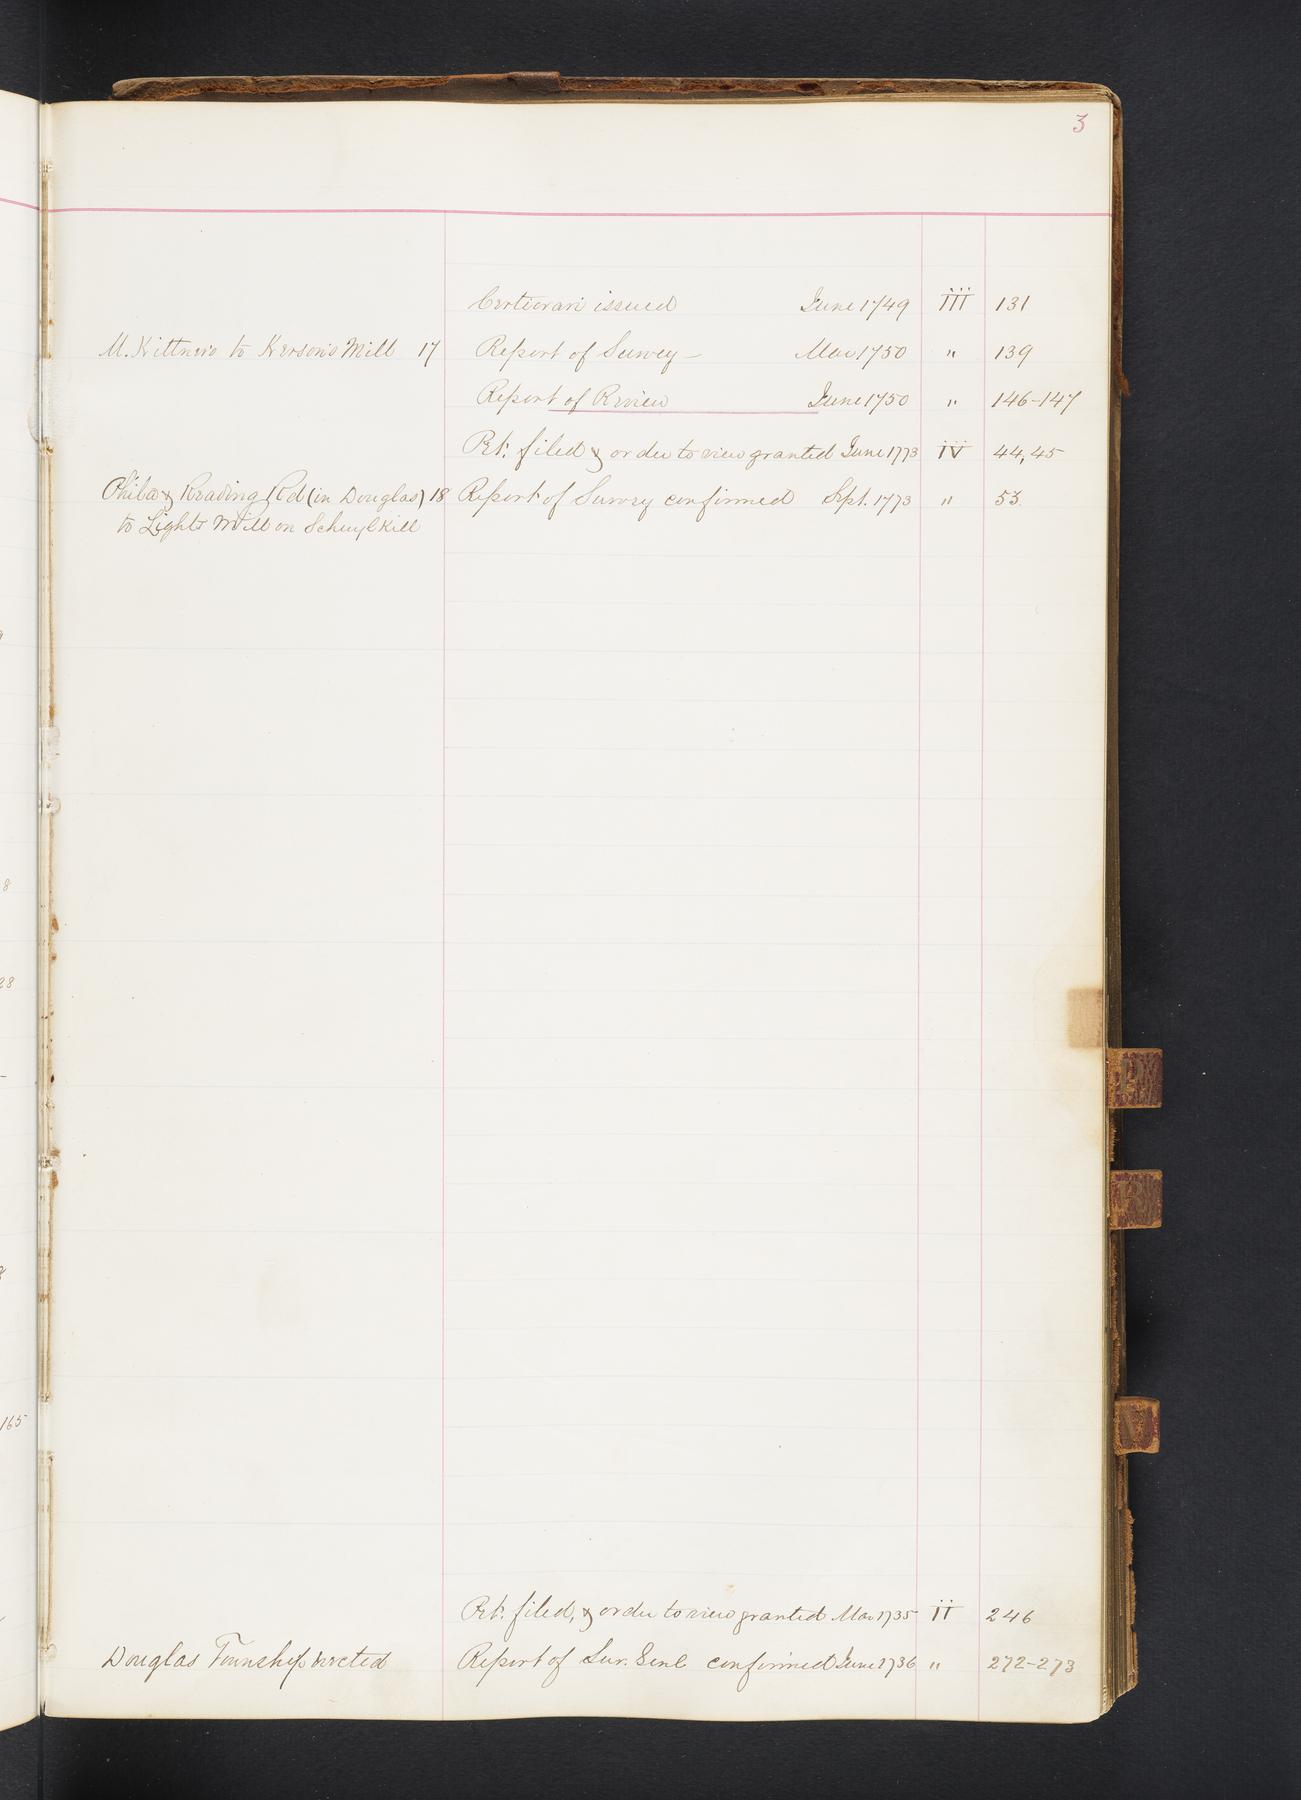 3
Certiorari issued June 1749 III 131
M. Kittner's to Kerson's Mill 17 Report of Survey Mar 1750 " 139
Report of Review June 1750 " 146-147
Pet. filed & order to view granted June 1773 IV 44,45
Phila & Reading Rd (in Douglas) 18 Report of Survey confirmed Sept. 1773 " 53
to Lights Mill on Schuylkill
28
8
165
Pet. filed, & order to view granted Mar 1735 II 246
Douglas Township erected Report of Sur. Genl confirmed June 1736 " 272-273
R
V